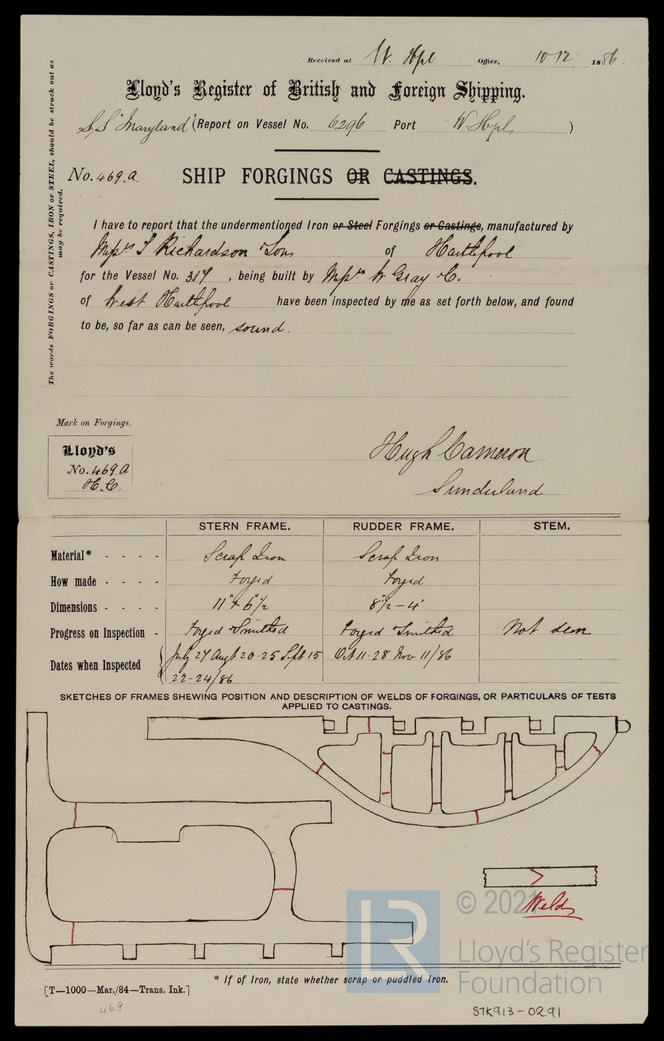 Received at W. Hpl Office, 10-12 1886
Lloyd's Register of British and Foreign Shipping.
S/S "Maryland" (Report on Vessel No. 6296 Port W. Hpl )
No. 469.A SHIP FORGINGS OR CASTINGS.
The words FORGINGS or CASTINGS, IRON or STEEL, should be struck out as
may be required.
I have to report that the undermentioned Iron or Steel Forgings or Castings, manufactured by
Messrs T Richardson & Sons of Hartlepool
for the Vessel No. 317 , being built by Messrs W Gray & C.
of West Hartlepool have been inspected by me as set forth below, and found
to be, so far as can be seen, sound.
Mark on Forgings.
Lloyd's
No. 469 A
H.C.
Hugh Cameron
Sunderland
STERN FRAME. RUDDER FRAME. STEM.
Material* - - - - Scrap Iron Scrap Iron
How made - - - - Forged Forged
Dimensions - - - - 11" x 6½ 8½ - 4"
Progress on Inspection - Forged & Smithed Forged & Smithed Not seen
Dates when Inspected July 27 Augt 20-25 Sept 15 Oct 11-28 Nov 11/86
22-24/86
SKETCHES OF FRAMES SHEWING POSITION AND DESCRIPTION OF WELDS OF FORGINGS, OR PARTICULARS OF TESTS
APPLIED TO CASTINGS.
Welds
LR
Lloyd's Register
Foundation
* If of Iron, state whether scrap or puddled Iron.
[T—1000—Mar./84—Trans. Ink.]
469
STK913-0291